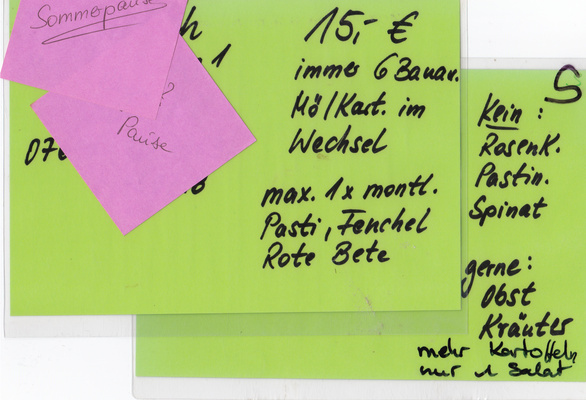 Sommerpause
?
Pause
h
1
07
15,- €
immer 6 Banan.
Mö/Kart. im
Wechsel
max. 1x montl.
Pasti, Fenchel
Rote Bete
S
Kein :
Rosenk.
Pastin.
Spinat
gerne:
Obst
Kräuter
mehr Kartoffeln
nur 1 Salat